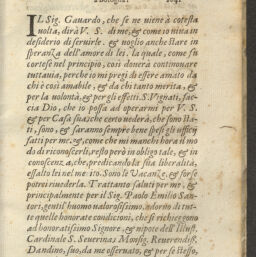 Bologna. 1641
IL Sig. Gauardo, che se ne viene à cotesta
volta, dirà V. S. di me, & come io viua in
desiderio di seruirle, & voglio anche stare in
speranza dell'amor di lei, la quale, come fù
cortese nel principio, così douerà continuare
tuttauia, perche io mi pregi di essere amato da
chi è così amabile, & da chi tanto merita, &
per la volontà, & per gli effetti. S. Vignati, fac-
cia Dio, che io possa ad operarmi per V. S.
& per Casa sua: che certo uederà, che sono sta-
ti, sono, & saranno sempre bene spesi gli ufficij
fatti per me. &, come che mi manchi hora il mo-
do di riconoscerli, resto però in obligo tale, & in
conoscenza, che, predicandola sua liberalità,
essalto lei ne i me
ito. Sono le Vacanze, & forse
potrei riuederla. Trattanto saluti per me, &
principalmente per il Sig. Paolo Emilio San-
tori, gentil'huomo ualorosissimo, adorno di tut-
te quelle honorate condicioni, che si richieggono
ad honoratissimo Signore, & nipote dell'Illust.
Cardinale S. Seuerina: Monsig. Reuerendiss.
Dandino, suo, da me osseruato, & per se stesso,